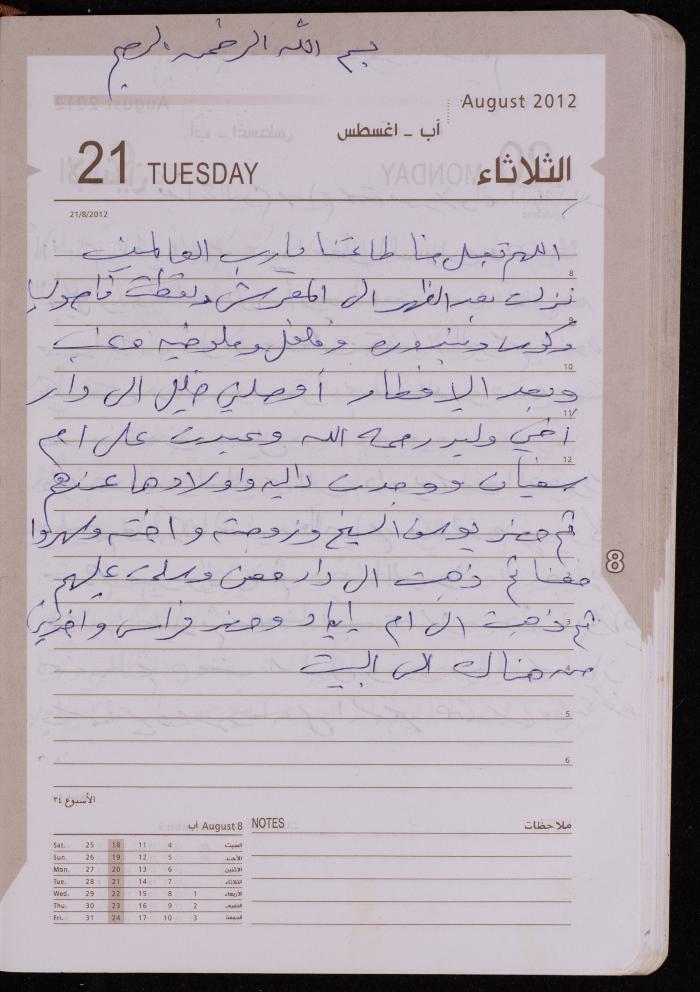 بسم الله الرحمن الرحيم
August 2012
آب - اغسطس
21 TUESDAY الثلاثاء
21/8/2012
اللهم تقبل منا طاعتنا يارب العالمين
8
نزلت بعد الظهر الى المفرش ولقطت فاصوليا
9
وكوسا وبندوره وفلفل وملوخيه وعنب
10
وبعد الإفطار أوصلني خليل الى دار
11
أخي وليد رحمه الله وعيدت على ام
12
سفيان ووجدت داليه واولادها عندهم
ثم حضر يوسف الشيخ وزوجته واخته وسهروا
معنا ثم ذهبت الى دار معن وسلمت عليهم
8
ثم ذهبت الى ام إياد وحضر فراس
3
من هناك الى البيت
4
5
6
الأسبوع ٣٤
آب August 8
Sat. 25 18 11 4 السبت
Sun. 26 19 12 5 الأحد
Mon. 27 20 13 6 الاثنين
Tue. 28 21 14 7 الثلاثاء
Wed. 29 22 15 8 1 الأربعاء
Thu. 30 23 16 9 2 الخميس
Fri. 31 24 17 10 3 الجمعة
NOTES ملاحظات